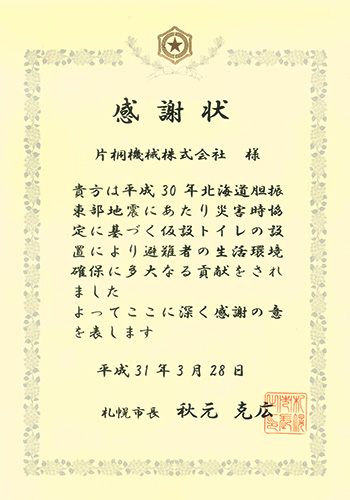 感謝状
片桐機械株式会社 様
貴方は平成30年北海道胆振
東部地震にあたり災害時協
定に基づく仮設トイレの設
置により避難者の生活環境
確保に多大なる貢献をされ
ました
よってここに深く感謝の意
を表します
平成31年3月28日
札幌市長 秋元 克広